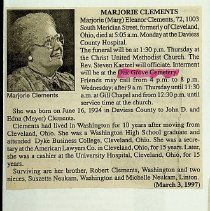 MARJORIE CLEMENTS
Marjorie (Marg) Eleanor Clements, 72, 1003
South Meridian Street, formerly of Cleveland,
Ohio, died at 5:05 a.m. Monday at the Daviess
County Hospital.
The funeral will be at 1:30 p.m. Thursday at
the Christ United Methodist Church. The
Rev. Steven Kaetzel will officiate. Interment
will be at the Oak Grove Cemetery.
Friends may call from 4 p.m. to 8 p.m.
Wednesday; after 9 a.m. Thursday until 11:30
a.m. at Gill Chapel and from 12:30 p.m. until
service time at the church.
Marjorie Clements
She was born on June 16, 1924 in Daviess County to John D. and
Edna (Moyer) Clements.
Clements had lived in Washington for 10 years after moving from
Cleveland, Ohio. She was a Washington High School graduate and
attended Dyke Business College, Cleveland, Ohio. She was a secre-
tary at the American Lawyers Co. in Cleveland, Ohio, for 15 years. Later,
she was a cashier at the University Hospital, Cleveland, Ohio, for 15
years.
Surviving are her brother, Robert Clements, Washington and two
nieces, Suzette Neukam, Washington and Michelle Neukam, Linton.
(March 3, 1997)